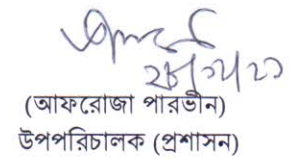 (আফরোজা পারভীন)
উপপরিচালক (প্রশাসন)